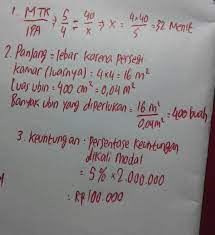 1. MTK/IPA → 5/4 = 40/x → x = 4×40/5 = 32 Menit
2. Panjang = lebar karena persegi
kamar (luasnya) = 4×4 = 16 m²
Luas ubin = 400 cm² = 0,04 m²
Banyak ubin yang diperlukan = 16 m²/0,04 m² = 400 buah
3. Keuntungan = Persentase keuntungan
dikali modal
= 5% × 2.000.000
= Rp 100.000